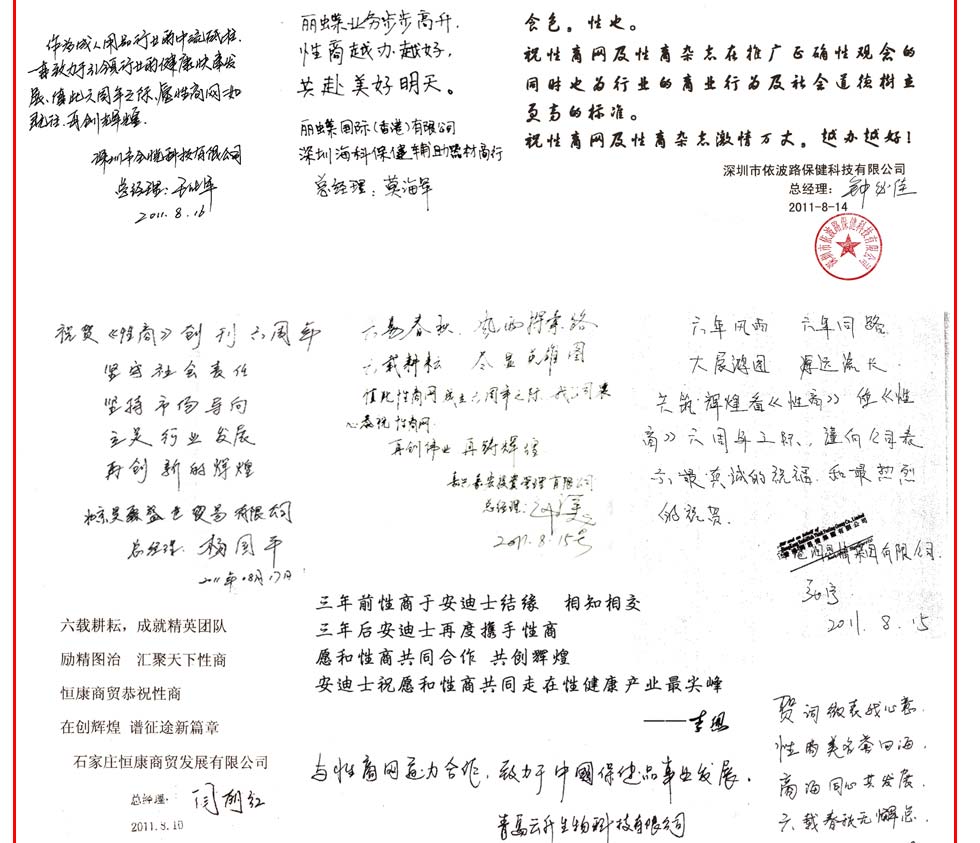 作为成人用品行业的中流砥柱,
一直致力于引领行业的健康快速发
展、值此六周年之际,愿性商网一如
既往、再创辉煌.
深圳市 科技有限公司
总经理:
2011.8.16
丽蝶业务步步高升,
性商越办越好,
共赴美好明天。
丽蝶国际(香港)有限公司
深圳海科保健辅助器材商行
总经理:莫海军
食色。性也。
祝性商网及性商杂志在推广正确性观念的
同时也为行业的商业行为及社会道德树立
更高的标准。
祝性商网及性商杂志激情万丈。越办越好!
深圳市依波路保健科技有限公司
总经理:
2011-8-14
深圳市依波路保健科技有限公司
祝贺《性商》创刊六周年
坚守社会责任
坚持市场导向
立足行业发展
再创新的辉煌
北京 贸易有限公司
总经理:杨国平
2011年08月17日
六易春秋、风雨探索路
六载耕耘 尽显 雄图
值此性商网成立六周年之际、我公司衷
心恭祝性商网
再创伟业 再铸辉煌
投资管理有限公司
总经理:
2011.8.15号
六年风雨 六年同路
大展鸿图 源远流长
共筑辉煌看《性商》 值《性
商》六周年之际、谨向公司表
示最真诚的祝福、和最热烈
的祝贺。
集团有限公司.
2011.8.15
六载耕耘,成就精英团队
励精图治 汇聚天下性商
恒康商贸恭祝性商
在创辉煌 谱征途新篇章
石家庄恒康商贸发展有限公司
总经理:闫丽红
2011.8.10
三年前性商于安迪士结缘 相知相交
三年后安迪士再度携手性商
愿和性商共同合作 共创辉煌
安迪士祝愿和性商共同走在性健康产业最尖峰
——李恩
与性商网 力合作,致力于中國保健品事业发展.
青岛云升生物科技有限公司
贺词敬表我心意.
性商美名 四海.
商海同心共发展.
六载春秋无懈怠.